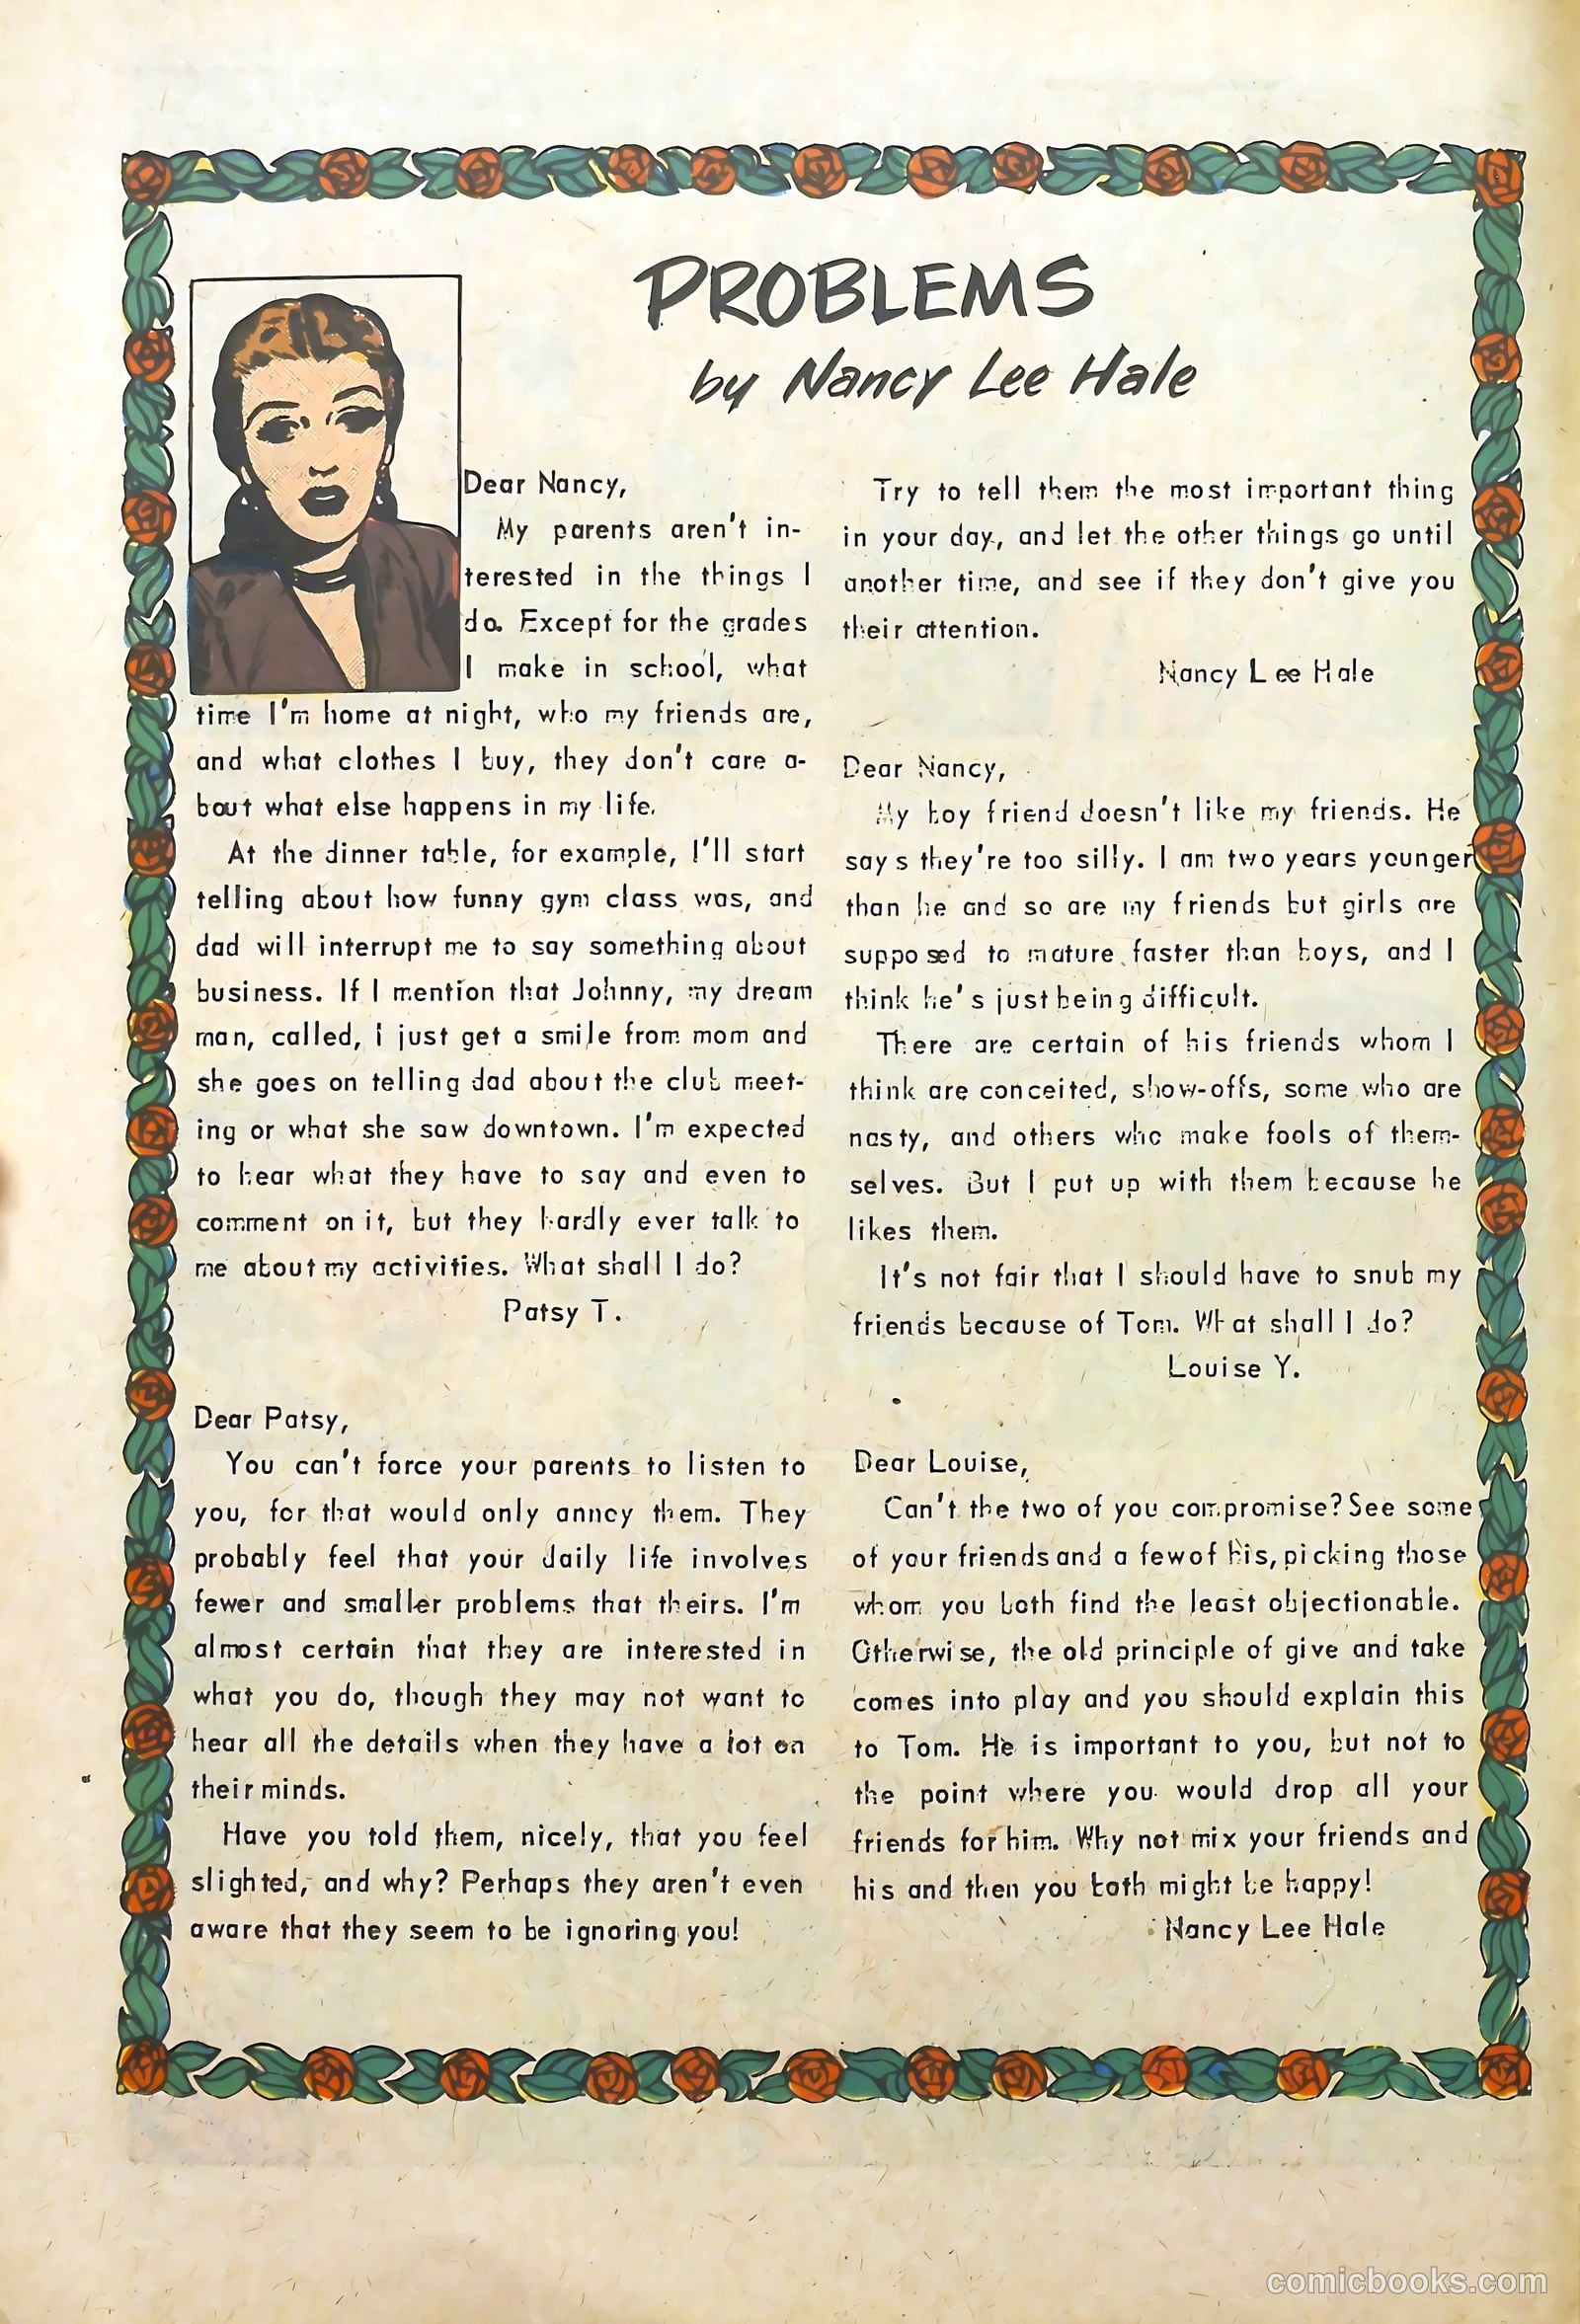 PROBLEMS
by Nancy Lee Hale
Dear Nancy,
My parents aren't in-
terested in the things I
do. Except for the grades
I make in school, what
time I'm home at night, who my friends are,
and what clothes I buy, they don't care a-
bout what else happens in my life.
At the dinner table, for example, I'll start
telling about how funny gym class was, and
dad will interrupt me to say something about
business. If I mention that Johnny, my dream
man, called, I just get a smile from mom and
she goes on telling dad about the club meet-
ing or what she saw downtown. I'm expected
to hear what they have to say and even to
comment on it, but they hardly ever talk to
me about my activities. What shall I do?
Patsy T.
Dear Patsy,
You can't force your parents to listen to
you, for that would only annoy them. They
probably feel that your daily life involves
fewer and smaller problems that theirs. I'm
almost certain that they are interested in
what you do, though they may not want to
hear all the details when they have a lot on
their minds.
Have you told them, nicely, that you feel
slighted, and why? Perhaps they aren't even
aware that they seem to be ignoring you!
Try to tell them the most important thing
in your day, and let the other things go until
another time, and see if they don't give you
their attention.
Nancy Lee Hale
Dear Nancy,
My boy friend doesn't like my friends. He
says they're too silly. I am two years younger
than he and so are my friends but girls are
supposed to mature faster than boys, and I
think he's just being difficult.
There are certain of his friends whom I
think are conceited, show-offs, some who are
nasty, and others who make fools of them-
selves. But I put up with them because he
likes them.
It's not fair that I should have to snub my
friends because of Tom. What shall I do?
Louise Y.
Dear Louise,
Can't the two of you compromise? See some
of your friends and a few of his, picking those
whom you both find the least objectionable.
Otherwise, the old principle of give and take
comes into play and you should explain this
to Tom. He is important to you, but not to
the point where you would drop all your
friends for him. Why not mix your friends and
his and then you both might be happy!
Nancy Lee Hale
comicbooks.com